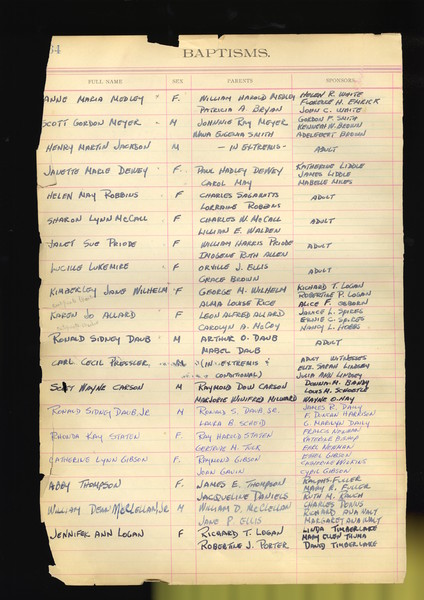 34
BAPTISMS.
FULL NAME SEX PARENTS SPONSORS
ANNE MARIA MEDLEY F. WILLIAM HAROLD MEDLEY HELEN R. WHITE
PATRICIA A. BRYAN FLORENCE H. EMRICK
JOHN C. WHITE
SCOTT GORDON MEYER M JOHNNIE RAY MEYER GORDON F. SMITH
NONA EUGENIA SMITH KENNETH W. BROWN
ADELBERT BROWN
HENRY MARTIN JACKSON M — IN EXTREMIS — ADULT
JANETTE MARIE DEWEY F. PAUL HADLEY DEWEY KATHERINE LIDDLE
CAROL MAY JAMES LIDDLE
MABELLE MILES
HELEN MAY ROBBINS F CHARLES ADULT
LORRAINE ROBBINS
SHARON LYNN McCALL F CHARLES W. McCALL ADULT
LILLIAN E. WALDEN
JANET SUE PRIODE F WILLIAM HARRIS PRIODE ADULT
IMOGENE RUTH ALLEN
LUCILLE LUKEMIRE F ORVILLE J. ELLIS ADULT
GRACE BROWN
KIMBERLEY JANE WILHELM F GEORGE M. WILHELM RICHARD T. LOGAN
ALMA LOUISE RICE ROBERTINE P. LOGAN
ALICE F. OSBORN
KAREN JO ALLARD F LEON ALFRED ALLARD JANICE L. SPIRES
CAROLYN A. McCOY ERNIE C. SPIRES
NANCY L. HOBBS
RONALD SIDNEY DAUB M ARTHUR O. DAUB ADULT
MABEL DAUB
CARL CECIL PRESSLER (IN EXTREMIS ADULT WITNESSES
CONDITIONAL) ELIZ. SEFAN LINDSEY
JULIA ANN LINDSEY
SCOTT WAYNE CARSON M RAYMOND DOW CARSON DONNIA M. BANDY
MARJORIE WINIFRED MILLWARD LOUIS M. SCHOETTLE
WAYNE O. HAY
RONALD SIDNEY DAUB, JR. M RONALD S. DAUB SR. JAMES R. DAILY
LAURA B. SCHEID F. DUNCAN HARRISON
C. MARILYN DAILY
RHONDA KAY STATEN F. ROY HAROLD STATEN FRANCIS NEWMAN
GERTRVE M. TUCK KATERINE BICKNP
EARL NEWMAN
CATHERINE LYNN GIBSON F. RAYMOND GIBSON ETHEL GIBSON
JOAN GAVIN CATHERINE WILKINS
CYRIL GIBSON
ABBY THOMPSON F. JAMES E. THOMPSON RALPH S. FULLER
JACQUELINE DANIELS MARY R. FULLER
RUTH M. ROUCH
WILLIAM DEAN McCLELLAN, JR M WILLIAM D. McCLELLAN CHARLES DENNIS
JANE P. ELLIS RICHARD ANAWALT
MARGARET ANAWALT
JENNIFER ANN LOGAN F RICHARD T. LOGAN LINDA TIMBERLAKE
ROBERTINE J. PORTER MARY ELLEN THUMA
DAVID TIMBERLAKE